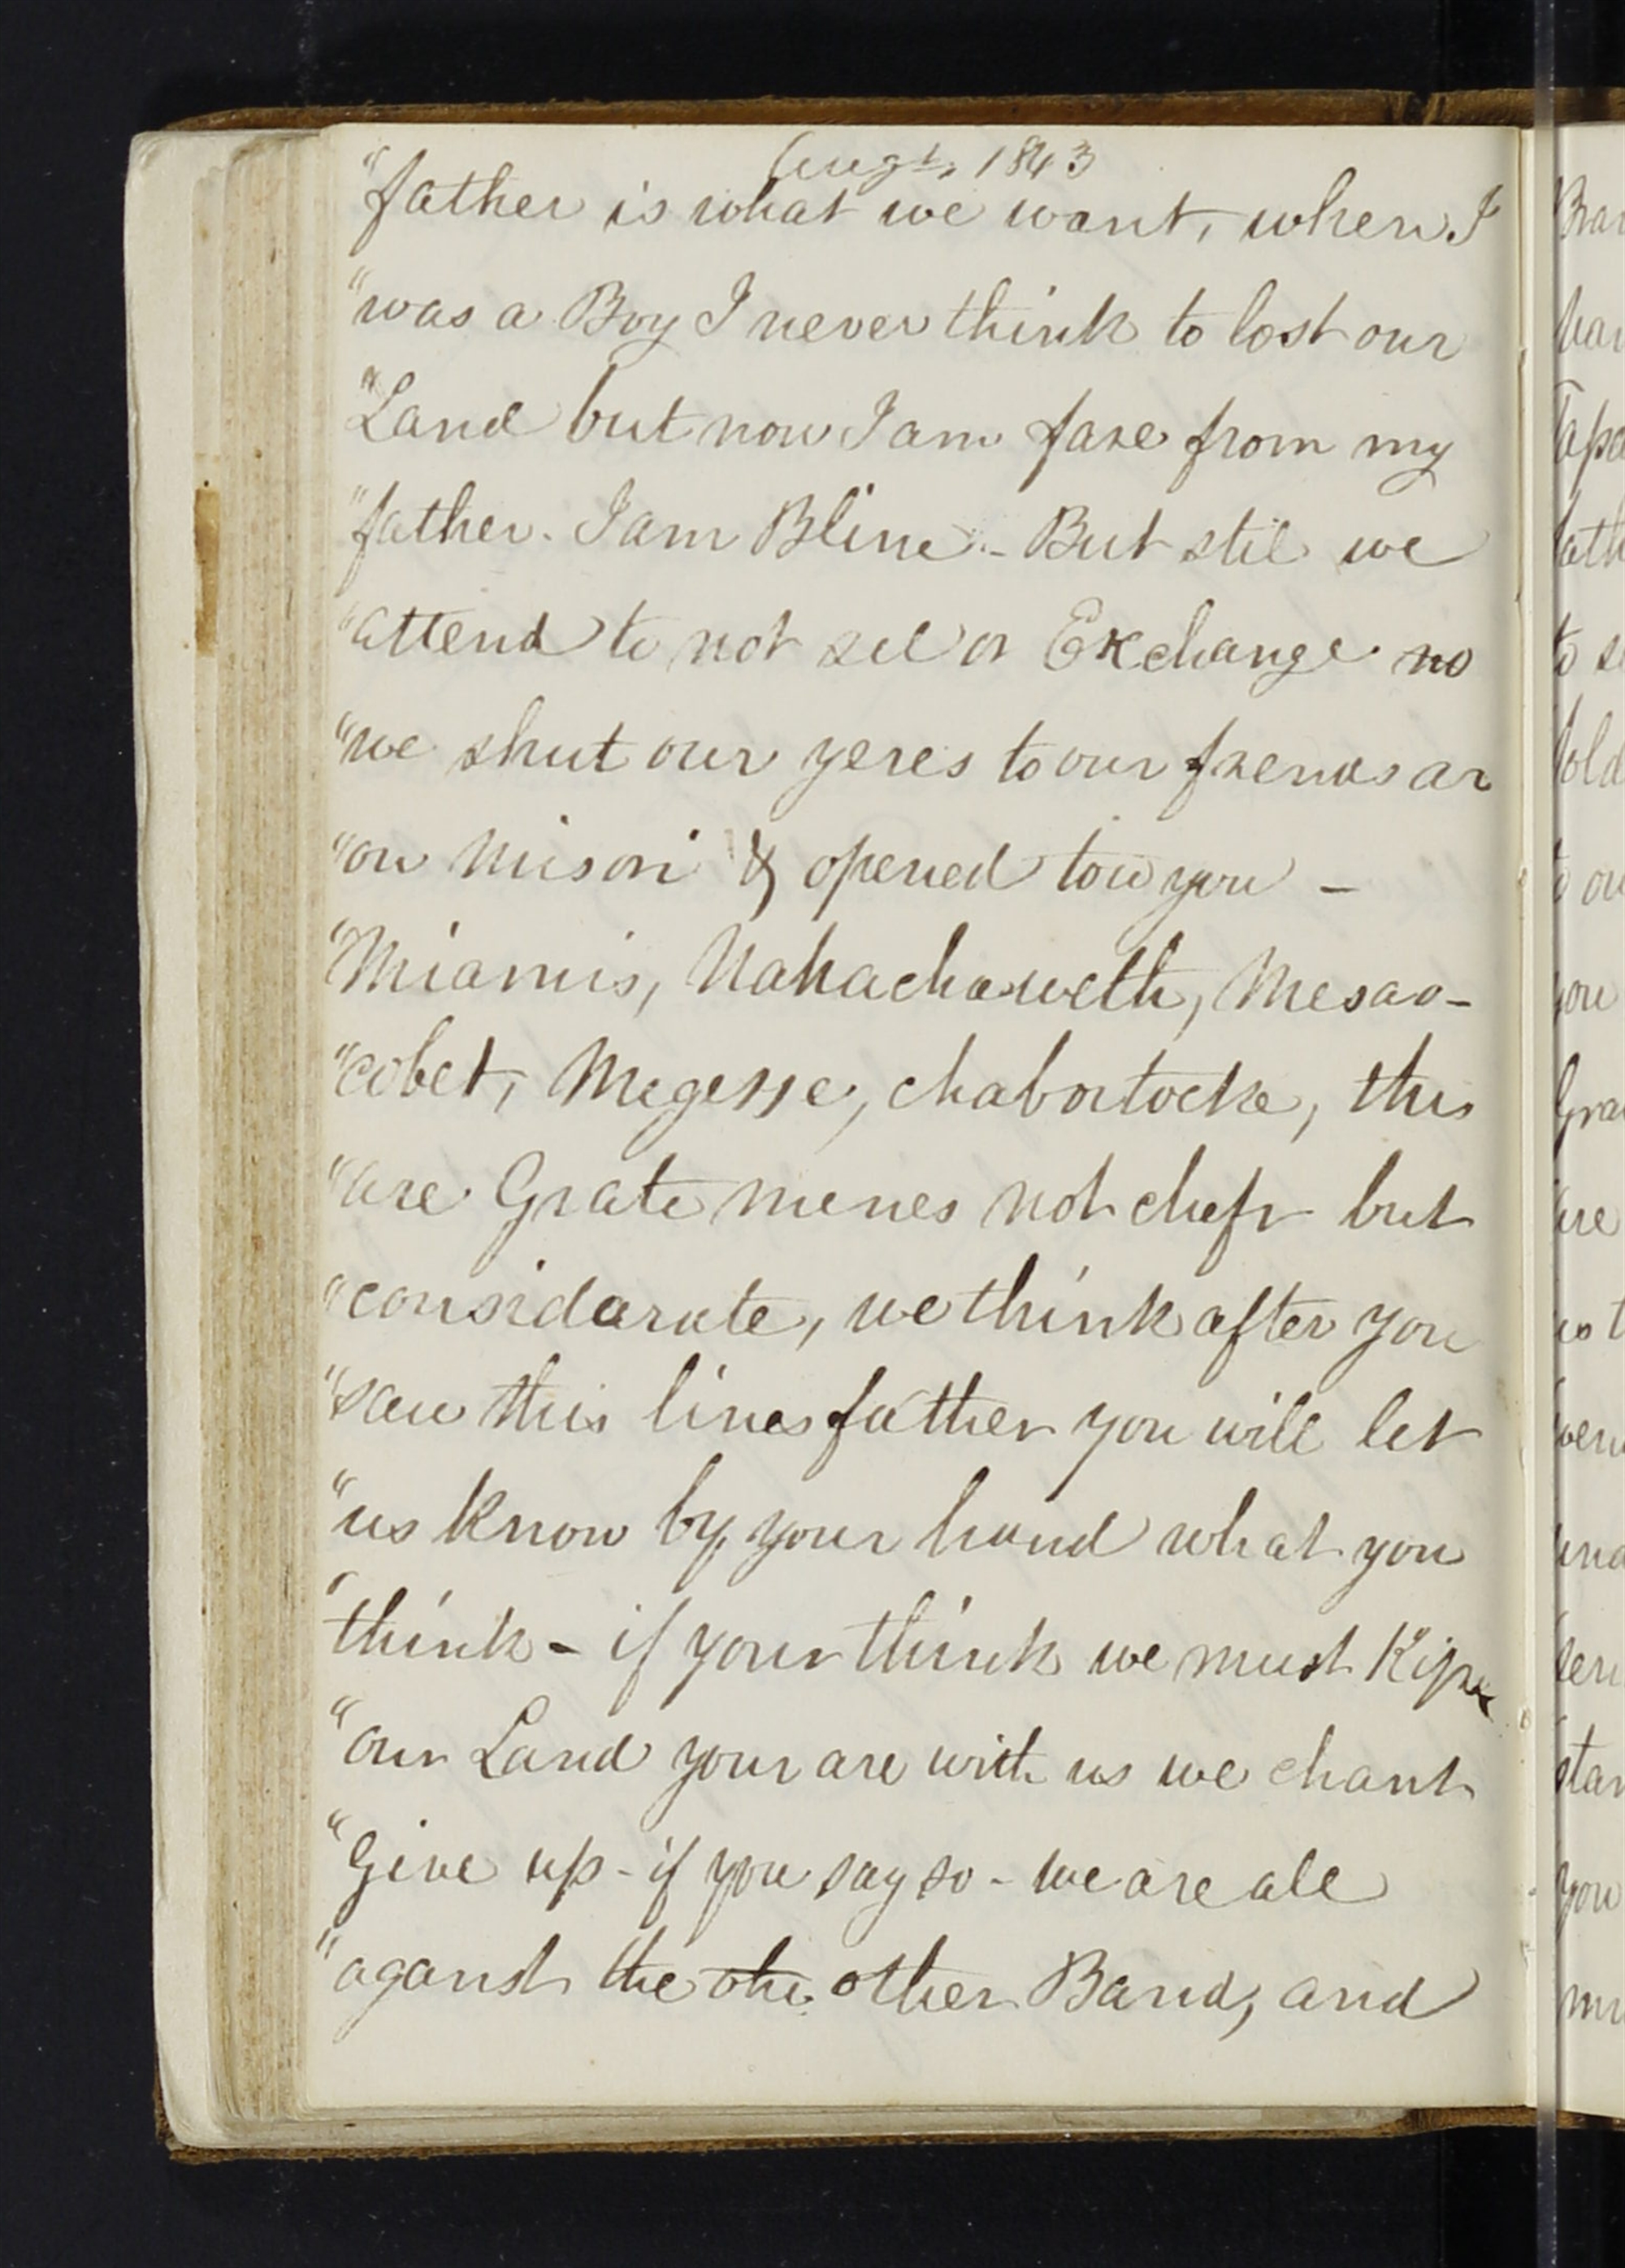 Augt. 1843
"father is what we want, when I
"was a Boy I never think to lost our
"Land but now I am fare from my
"father. I am Bline - But stil we
"attend to not sel or Exchange no
"we shut our yeres to our frends ar
"on Misori & opened tow you -
"Miamis, Nahachaweth, Mesao-
"cobet, Megesse, chabortocke, this
"are Grate menes not chefs but
"considarate, we think after you
"saw this lines father you will let
"us know by your hand what you
"think - if your think we must Kipe
"our Land your are with us we chant
"Give up - if you say so - we are all
"aganst the othe other Band, and